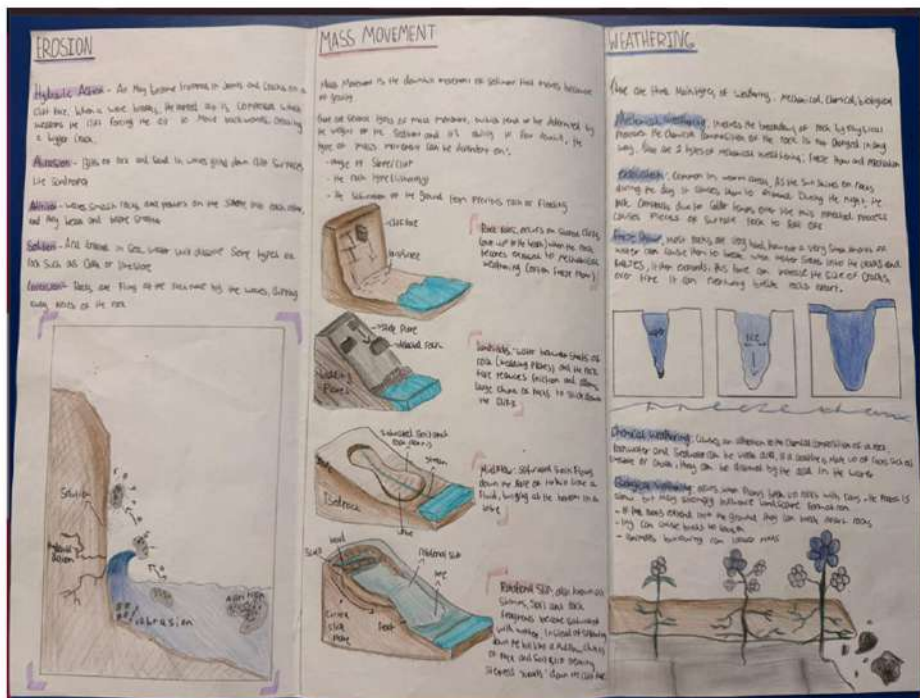 EROSION
Hydraulic Action - Air may become trapped in joints and cracks on a
cliff face. When a wave breaks, the trapped air is compressed which
weakens the cliff forcing the air to move backwards, creating
a higher crack.
Abrasion - Bits of rock and sand in waves grind down cliff surfaces
like sandpaper
Attrition - waves smash rocks and pebbles on the shore into each other,
and they break and become smoother
Solution - Acid contained in sea water will dissolve some types of
rock such as chalk or limestone
Corrasion - Rocks are flung at the by the waves, chipping
away pieces of the rock
Solution
Hydraulic
Action
abrasion
attrition
MASS MOVEMENT
Mass Movement is the downhill movement of sediment that moves because
of gravity
There are several types of mass movement, which tend to be determined by
the weight of the sediment and it's ability to flow downhill, the
type of mass movement can be dependent on:
- Angle of slope/cliff
- The rock type (lithology)
- The saturation of the ground from previous rain or flooding
cliff face
Rock falls, occurs on sloped cliffs
(over 40° to the beach) when the rock
becomes exposed to mechanical
weathering (often freeze thaw)
Slide plane
detached rock
bedding
planes
Landslides - water between strata of
rock (bedding planes) and the rock
face reduces friction and allows
large chunks of rocks to slide down
the cliffs
saturated soil and
rock debris
stream
Bedrock
Lobe
Mudflow: Saturated Earth flows
down the slope or within like a
fluid, bulging at the bottom in a
lobe
head
scarp
rotational slip
curved
slip
plane
foot
Rotational Slip, also known as
slumps, soils and rock
fragments become saturated
with water. Instead of spreading
down the hill like a mudflow, chunks
of rock and soil slip
down the cliff face
WEATHERING
There are three main types of weathering. Mechanical, Chemical, biological
Mechanical weathering: Involves the breakdown of rock by physical
processes. The chemical composition of the rock is not changed in any
way. There are 2 types of mechanical weathering: Freeze thaw and
Exfoliation: Common in warm areas, As the sun shines on rocks
during the day it causes them to expand. During the night, the
rock contracts due to colder temps over time this repeated process
causes pieces of surface rock to fall off.
Freeze thaw, most rocks are very hard, however a very small amount of
water can cause them to break. When water seeps into the cracks and
freezes, it then expands. This force can increase the size of cracks,
over time it can eventually break rocks apart.
water
ice
freeze thaw
Chemical weathering: Causes an alteration to the chemical composition of a rock.
Rainwater and Seawater can be weak acid, if a coastline is made up of rocks such as
limestone or chalk, they can be dissolved by the acid in the water
Biological weathering: occurs when plants break up rocks with roots. The process is
slow but may strongly influence landscape formation.
- If the roots extend into the ground they can break apart rocks
- Ivy can cause rocks to
- animals burrowing can loosen rocks